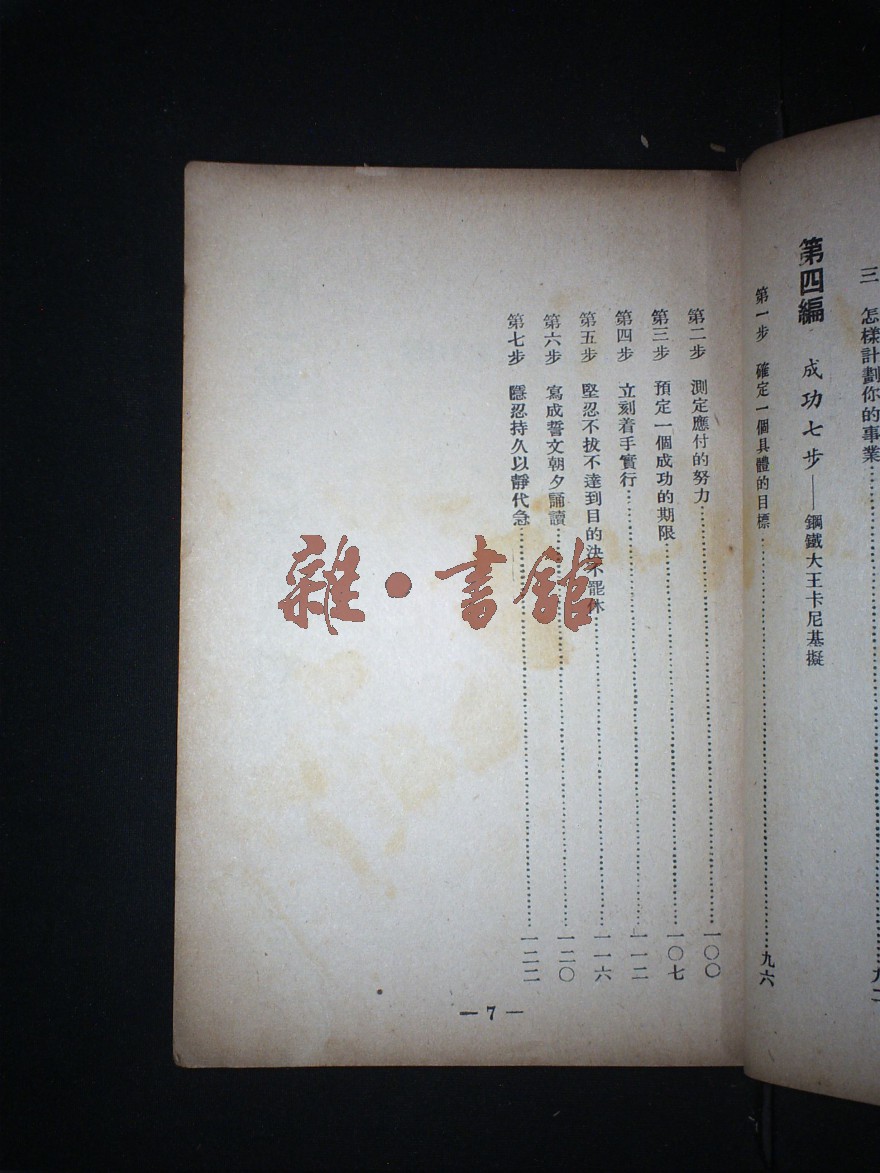 三　怎樣計劃你的事業
第四編　成功七步——鋼鐵大王卡尼基擬
第一步　確定一個具體的目標……九六
第二步　測定應付的努力……一〇〇
第三步　預定一個成功的期限……一〇七
第四步　立刻着手實行……一一二
第五步　堅忍不拔不達到目的決不罷休……一一六
第六步　寫成誓文朝夕誦讀……一二〇
第七步　隱忍持久以靜代急……一二二
— 7 —
雜·書館